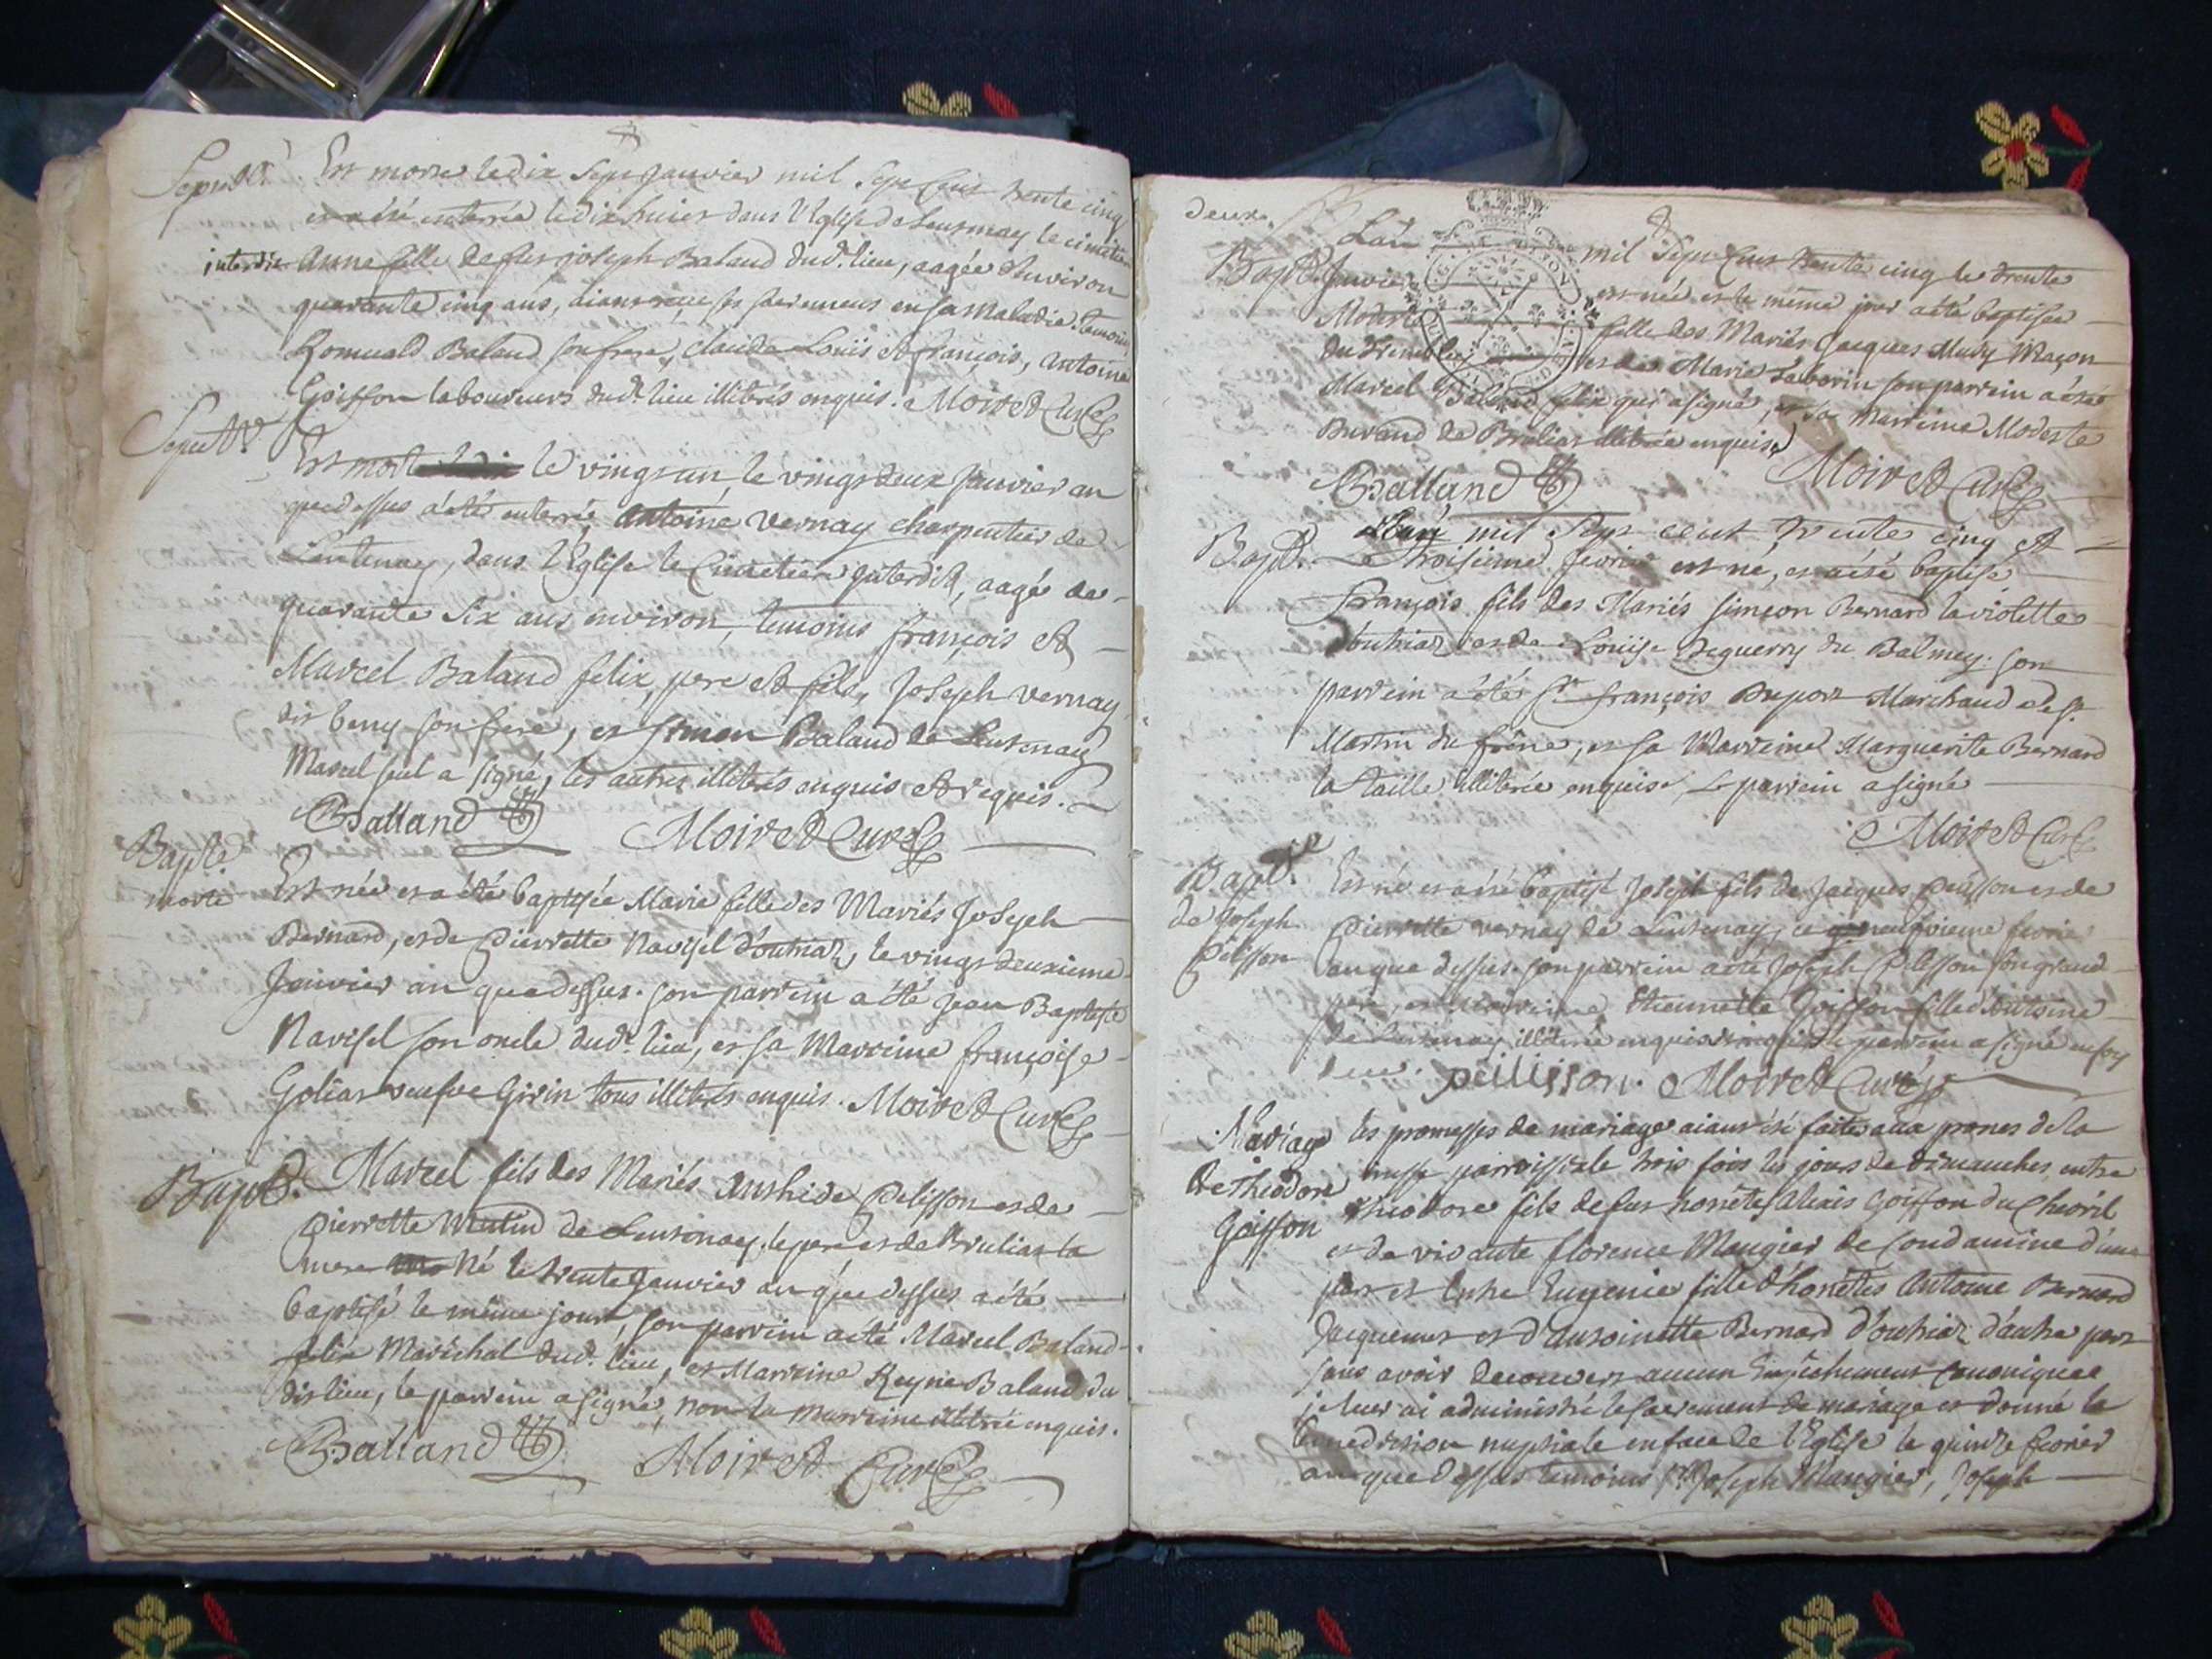 Sepult.
Est morte le dix sept janvier mil sept cens trente cinq
et a été enterrée le dix huict dans l'Eglise de Leutenay le cimetier
interdit Anne fille de feu joseph Baland dud. lieu, aagée d'environ
quarante cinq ans, aiant reçu ses sacremens en sa maladie. temoins
Romuald Baland son frere, claude Louis et françois, Antoine
Goiffon laboureurs dud. lieu illiterés enquis. Moiret Curé
Sepult.
Est mort le vingt un le vingt deux janvier an
que dessus a été enterré Antoine Vernay charpentier de
Leutenay, dans l'Eglise le Cimetiere interdit, aagé de
quarante six ans environ, temoins françois et
Marcel Baland felix, pere et fils, Joseph vernay
dit berry son frere, et Simon Baland de Leutenay
Marcel seul a signé, les autres illiterés enquis et requis.
Balland Moiret Curé
Bapte.
morte
Est née et a été baptisée Marie fille des Mariés Joseph
Bernard, et de Pierrette Navisel d'outriaz, le vingt deuxieme
Janvier an que dessus. son parrein a été Jean Baptiste
Navisel son oncle dud. lieu, et sa Marreine françoise
Golias veufve Girin tous illiterés enquis. Moiret Curé
Bapt.
Marcel fils des Mariés Anthide Pelisson et de
Pierrette de Leutenay, le pere et de Brulias la
mere Né le trente Janvier an que dessus a été
baptisé le même jour, son parrein a été Marcel Baland
felix Maréchal dud. lieu, et Marreine Reyne Baland du
dit lieu, le parrein a signé, non la marreine illiterée enquis.
Balland Moiret Curé
deux.
L'an mil sept cens trente cinq le trente
Bapt. Janvier est née et le même jour a été baptisée
Modeste fille des Mariés Jacques Mury Maçon
du et de Marie Saborin son parrein a été
Marcel Baland felix qui a signé, et sa marreine Modeste
Burand de Brulias illiterée enquise
Balland Moiret Curé
L'an mil sept cent trente cinq et
Bapt. le troisieme fevrier est né, et a été baptisé
François fils des Mariés simeon Bernard la violette
d'outriaz et de Louise Deguerry du Balmey. son
parrein a été Sr. françois Dupont Marchand de St.
Martin du frêne, et sa Marreine Marguerite Bernard
la taille illiterée enquise, le parrein a signé
Moiret Curé
Bapt.
de joseph
Pelisson
Est né et a été baptisé Joseph fils de Jacques Pelisson et de
Pierrette vernay de Leutenay, ce neufvieme fevrier
an que dessus. son parrein a été Joseph Pelisson son grand
pere, et marreine Etiennette Goiffon fille d'Antoine
de Leutenay illiterée enquise le parrein a signé en foy
de ce. peilisson. Moiret Curé
Mariage
de Theodore
Goiffon
les promesses de mariage aiant été faites aux prones de la
messe parroissiale trois fois les jours de dimanches, entre
theodore fils de feu honête Alexis Goiffon du Chevril
et de vivante florence Maugier de Condamine d'une
part et entre Eugenie fille d'honêtes Antoine Bernard
Jacquemet et d'Antoinette Bernard d'outriaz d'autre part
sans avoir decouvert aucun Empêchement canonique
je leur ai administré le sacrement de mariage et donné la
benediction nuptiale en face de l'Eglise le quinze fevrier
an que dessus temoins Sr. Joseph Maugier, Joseph